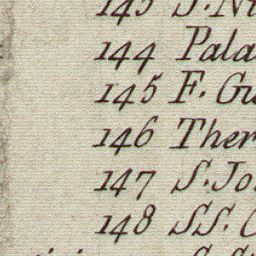 143 S. Ni
144 Pala
145 F. Gu
146 Ther
147 S. Jo
148 SS. C